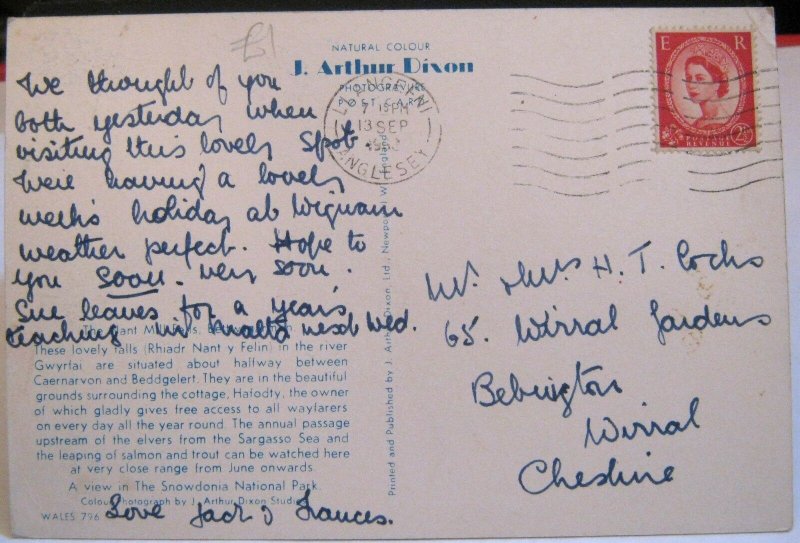 £1
NATURAL COLOUR
J. Arthur Dixon
PHOTOGRAVURE
POST CARD
We thought of you
both yesterday when
visiting this lovely spot.
Were having a lovely
week's holiday at Wignam
weather perfect. Hope to
you soon. very soon.
Sue leaves for a years
teaching in next Wed.
The Nant Mill Falls,
These lovely falls (Rhiadr Nant y Felin) in the river
Gwyrfai are situated about halfway between
Caernarvon and Beddgelert. They are in the beautiful
grounds surrounding the cottage, Hafodty, the owner
of which gladly gives free access to all wayfarers
on every day all the year round. The annual passage
upstream of the elvers from the Sargasso Sea and
the leaping of salmon and trout can be watched here
at very close range from June onwards.
A view in The Snowdonia National Park.
Colour Photograph by J. Arthur Dixon Studios
WALES 796
Love Jack & Frances.
Printed and Published by J. Arthur Dixon Ltd., Newport I.W. England
LLANGEFNI
7 15 PM
13 SEP
ANGLESEY
E R
POSTAGE
REVENUE
2½
Mr. & Mrs H. T. Cocks
65. Wirral Gardens
Bebington
Wirral
Cheshire